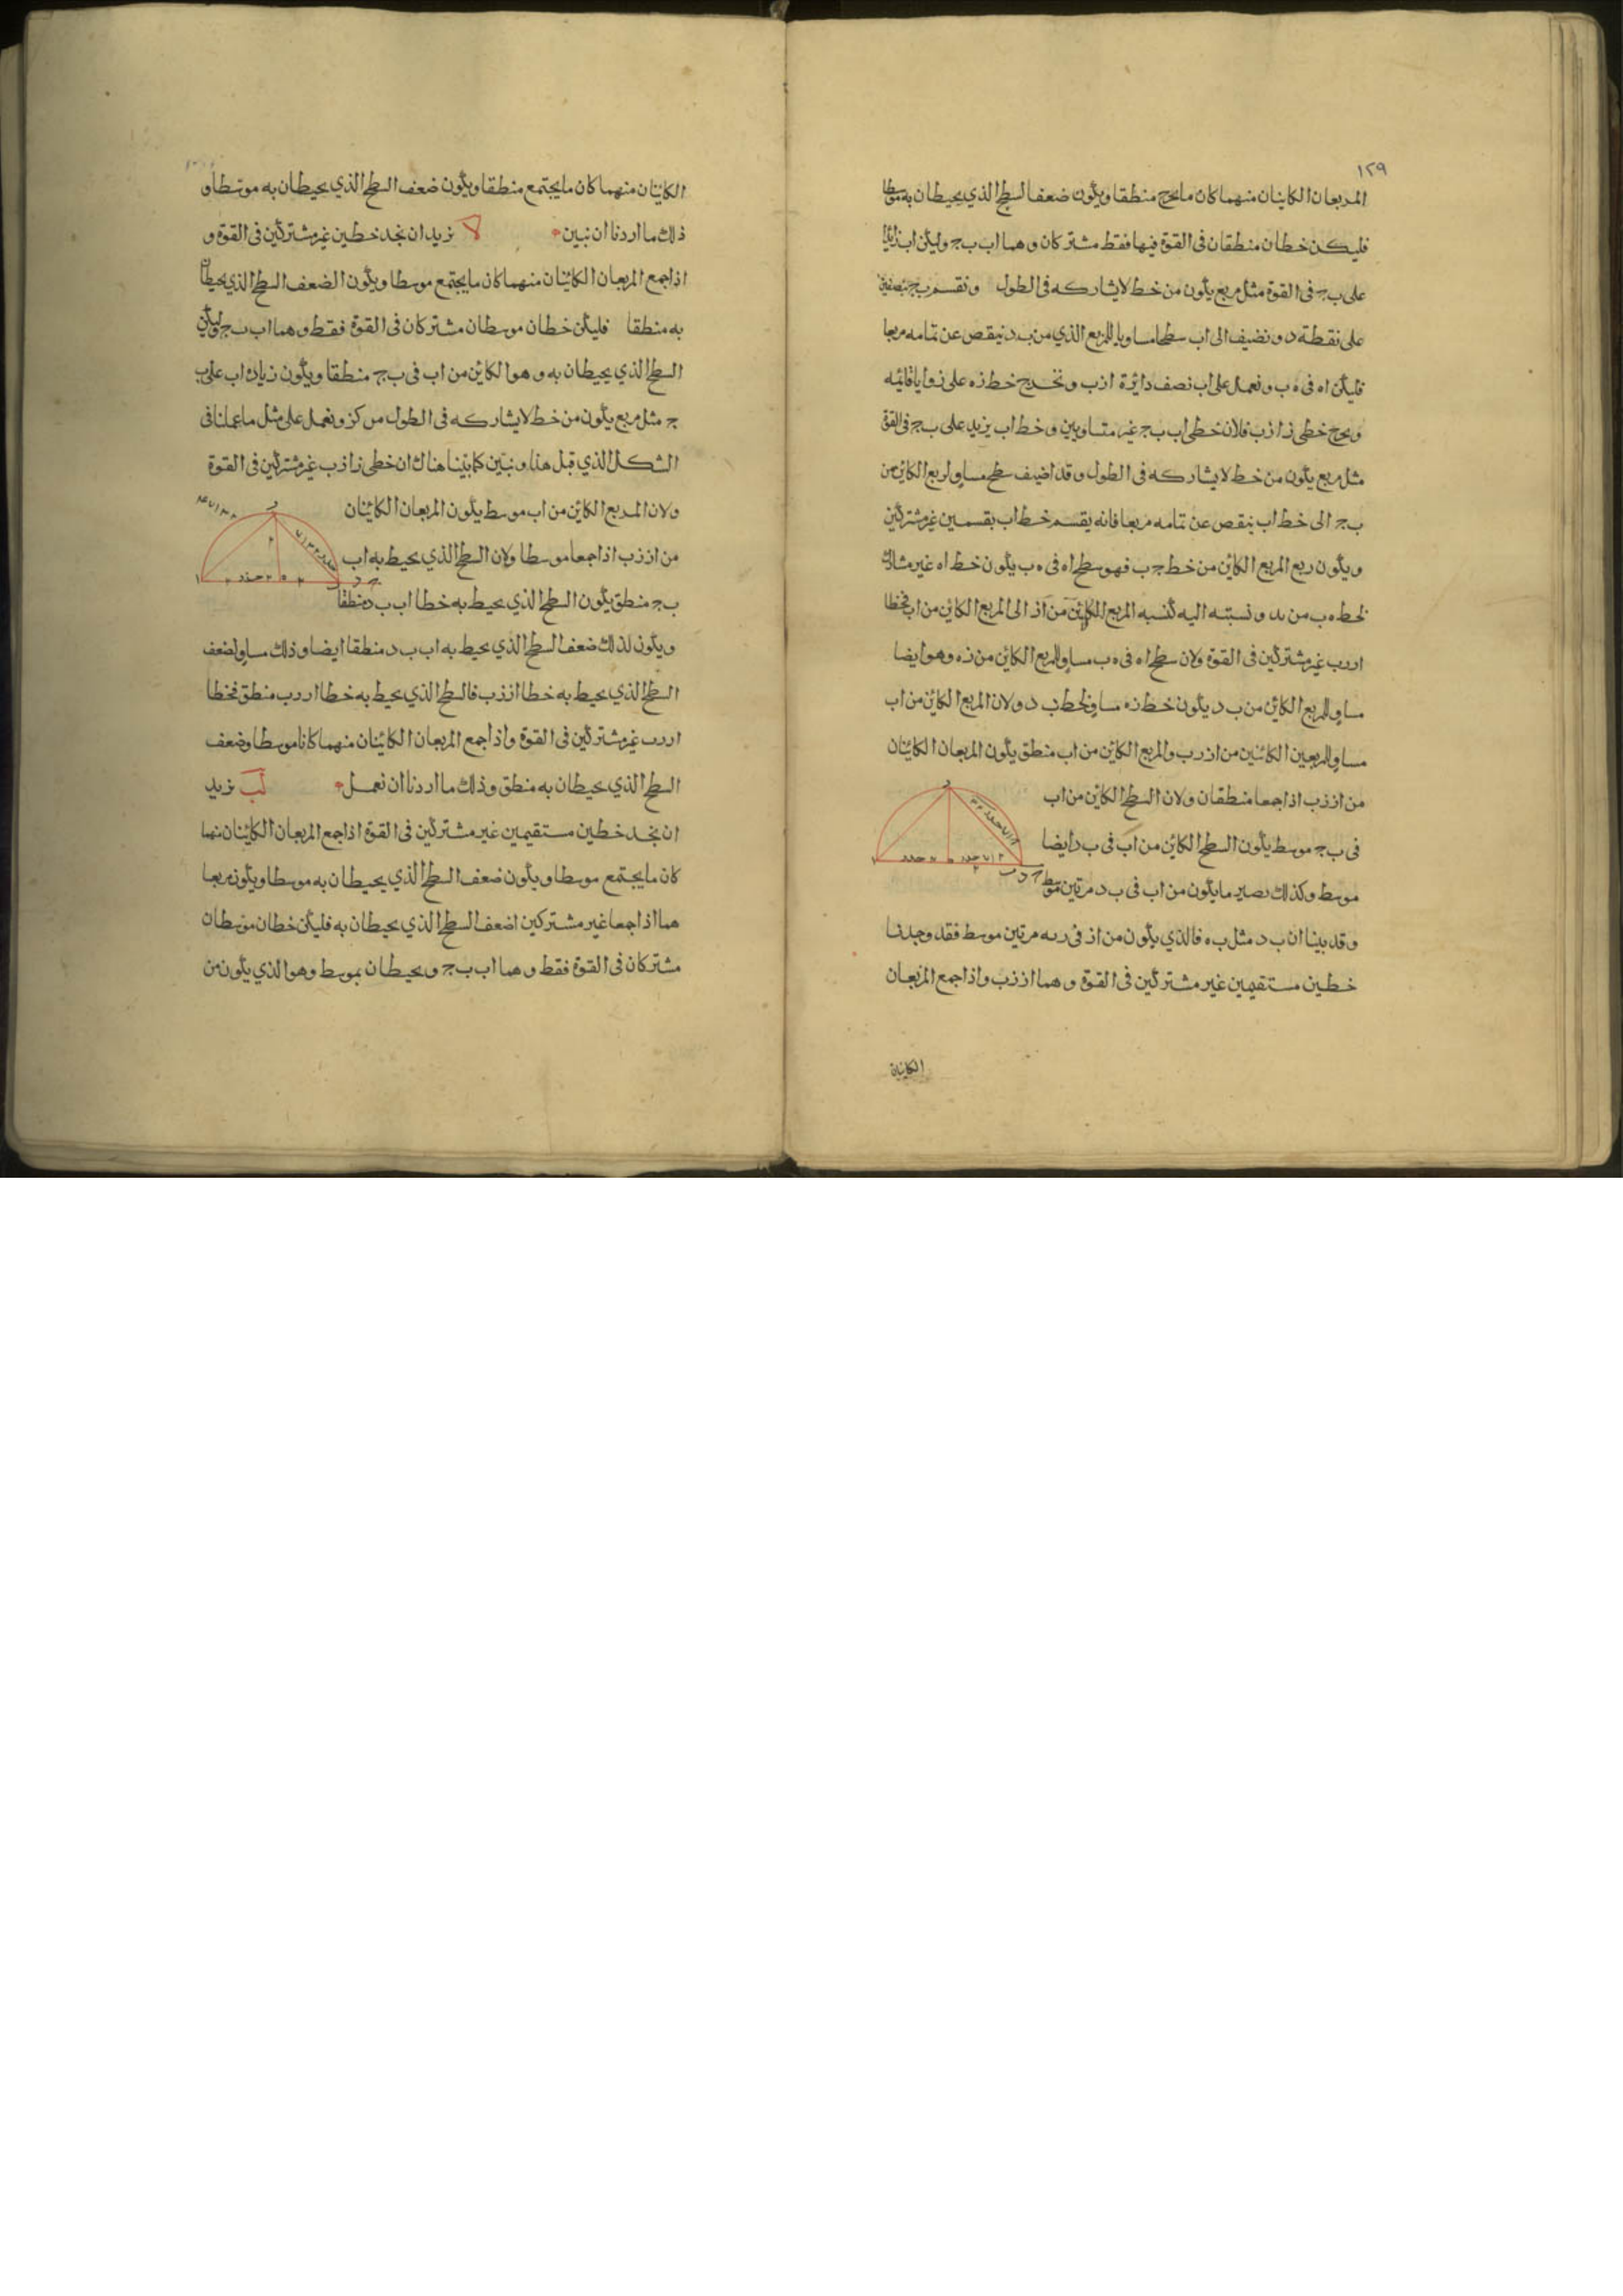 ١٢٩
المربعان الكاينان منهما كان مايخرج منطقا ويكون ضعف السطح الذي يحيطان به موسطا
فليكن خطان منطقان في القوة فيها فقط مشتركان و هما اب ب ج وليكن اب زايدا
على ب ج في القوة مثل مربع يكون من خط لايشاركه في الطول و نقسم ب ج بنصفين
على نقطة د و نضيف الى اب سطحا مساويا للمربع الذي من ب د ينقص عن تمامه مربعا
فليكن اه في ه ب و نعمل على اب نصف دائرة ازب و نخرج خط زه على زوايا قائمه
ويخرج خطى زا زب فلان خطى اب ب ج غير متساويين و خط اب يزيد على ب ج في القوة
مثل مربع يكون من خط لايشاركه في الطول و قد اضيف سطح مساو لربع الكائن من
ب ج الى خط اب ينقص عن تمامه مربعا فانه يقسم خط اب بقسمين غير مشتركين
ويكون ربع المربع الكائن من خط ج ب فهو سطح اه في ه ب يكون خط اه غير مشارك
لخط ه ب من و نسبته اليه كنسبه المربع الكائن من از الى المربع الكائن من اب فخطا
ار رب غير مشتركين في القوة ولان سطح اه في ه ب مساو للمربع الكائن من زه وهو ايضا
مساو للمربع الكائن من ب د يكون خط زه مساو لخط ب د ولان المربع الكائن من اب
مساو للمربعين الكائنين من از رب والمربع الكائن من اب منطق يكون المربعان الكائنان
من از زب اذا جمعا منطقان ولان السطح الكائن من اب
في ب ج موسط يكون السطح الكائن من اب في ب د ايضا
موسط وكذلك يصير ما يكون من اب في ب د مرتين موسط
وقد بينا ان ب د مثل ب ه فالذي يكون من از في ره مرتين موسط فقد وجدنا
خطين مستقيمين غير مشتركين في القوة و هما از زب واذا جمع المربعان
الكاينان
الكاينان منهما كان مايجتمع منطقا ويكون ضعف السطح الذي يحيطان به موسطا و
ذلك ما اردنا ان نبين لا نريد ان نجد خطين غير مشتركين في القوة و
اذا جمع المربعان الكائنان منهما كان مايجتمع موسطا ويكون الضعف السطح الذي يحيطان
به منطقا فليكن خطان موسطان مشتركان في القوة فقط و هما اب ب ج وليكن
السطح الذي يحيطان به و هو الكائن من اب في ب ج منطقا ويكون زياده اب على ب
ج مثل مربع يكون من خط لايشاركه في الطول ونعمل على مثل ما عملنا في
الشكل الذي قبل هذا و نبين كما بينا هناك ان خطى زا زب غير مشتركين في القوة
ولان المربع الكائن من اب موسط يكون المربعان الكائنان
من از زب اذا جمعا موسطا ولان السطح الذي يحيط به اب
ب ج منطق يكون السطح الذي يحيط به خطا اب ب د منطقا
ويكون لذلك ضعف السطح الذي يحيط به اب ب د منطقا ايضا وذلك مساو لضعف
السطح الذي يحيط به خطا از زب فالسطح الذي يحيط به خطا ار رب منطق فخطا
ار رب غير مشتركين في القوة واذا جمع المربعان الكائنان منهما كانا موسطا وضعف
السطح الذي يحيطان به منطق وذلك ما اردنا ان نعمل لب نريد
ان نجد خطين مستقيمين غير مشتركين في القوة اذا جمع المربعان الكائنان منهما
كان ما يجتمع موسطا ويكون ضعف السطح الذي يحيطان به موسطا ويكون مربعا
هما اذا جمعا غير مشتركين اضعف السطح الذي يحيطان به فليكن خطان موسطان
مشتركان في القوة فقط و هما اب ب ج ويحيطان بموسط وهو الذي يكون من